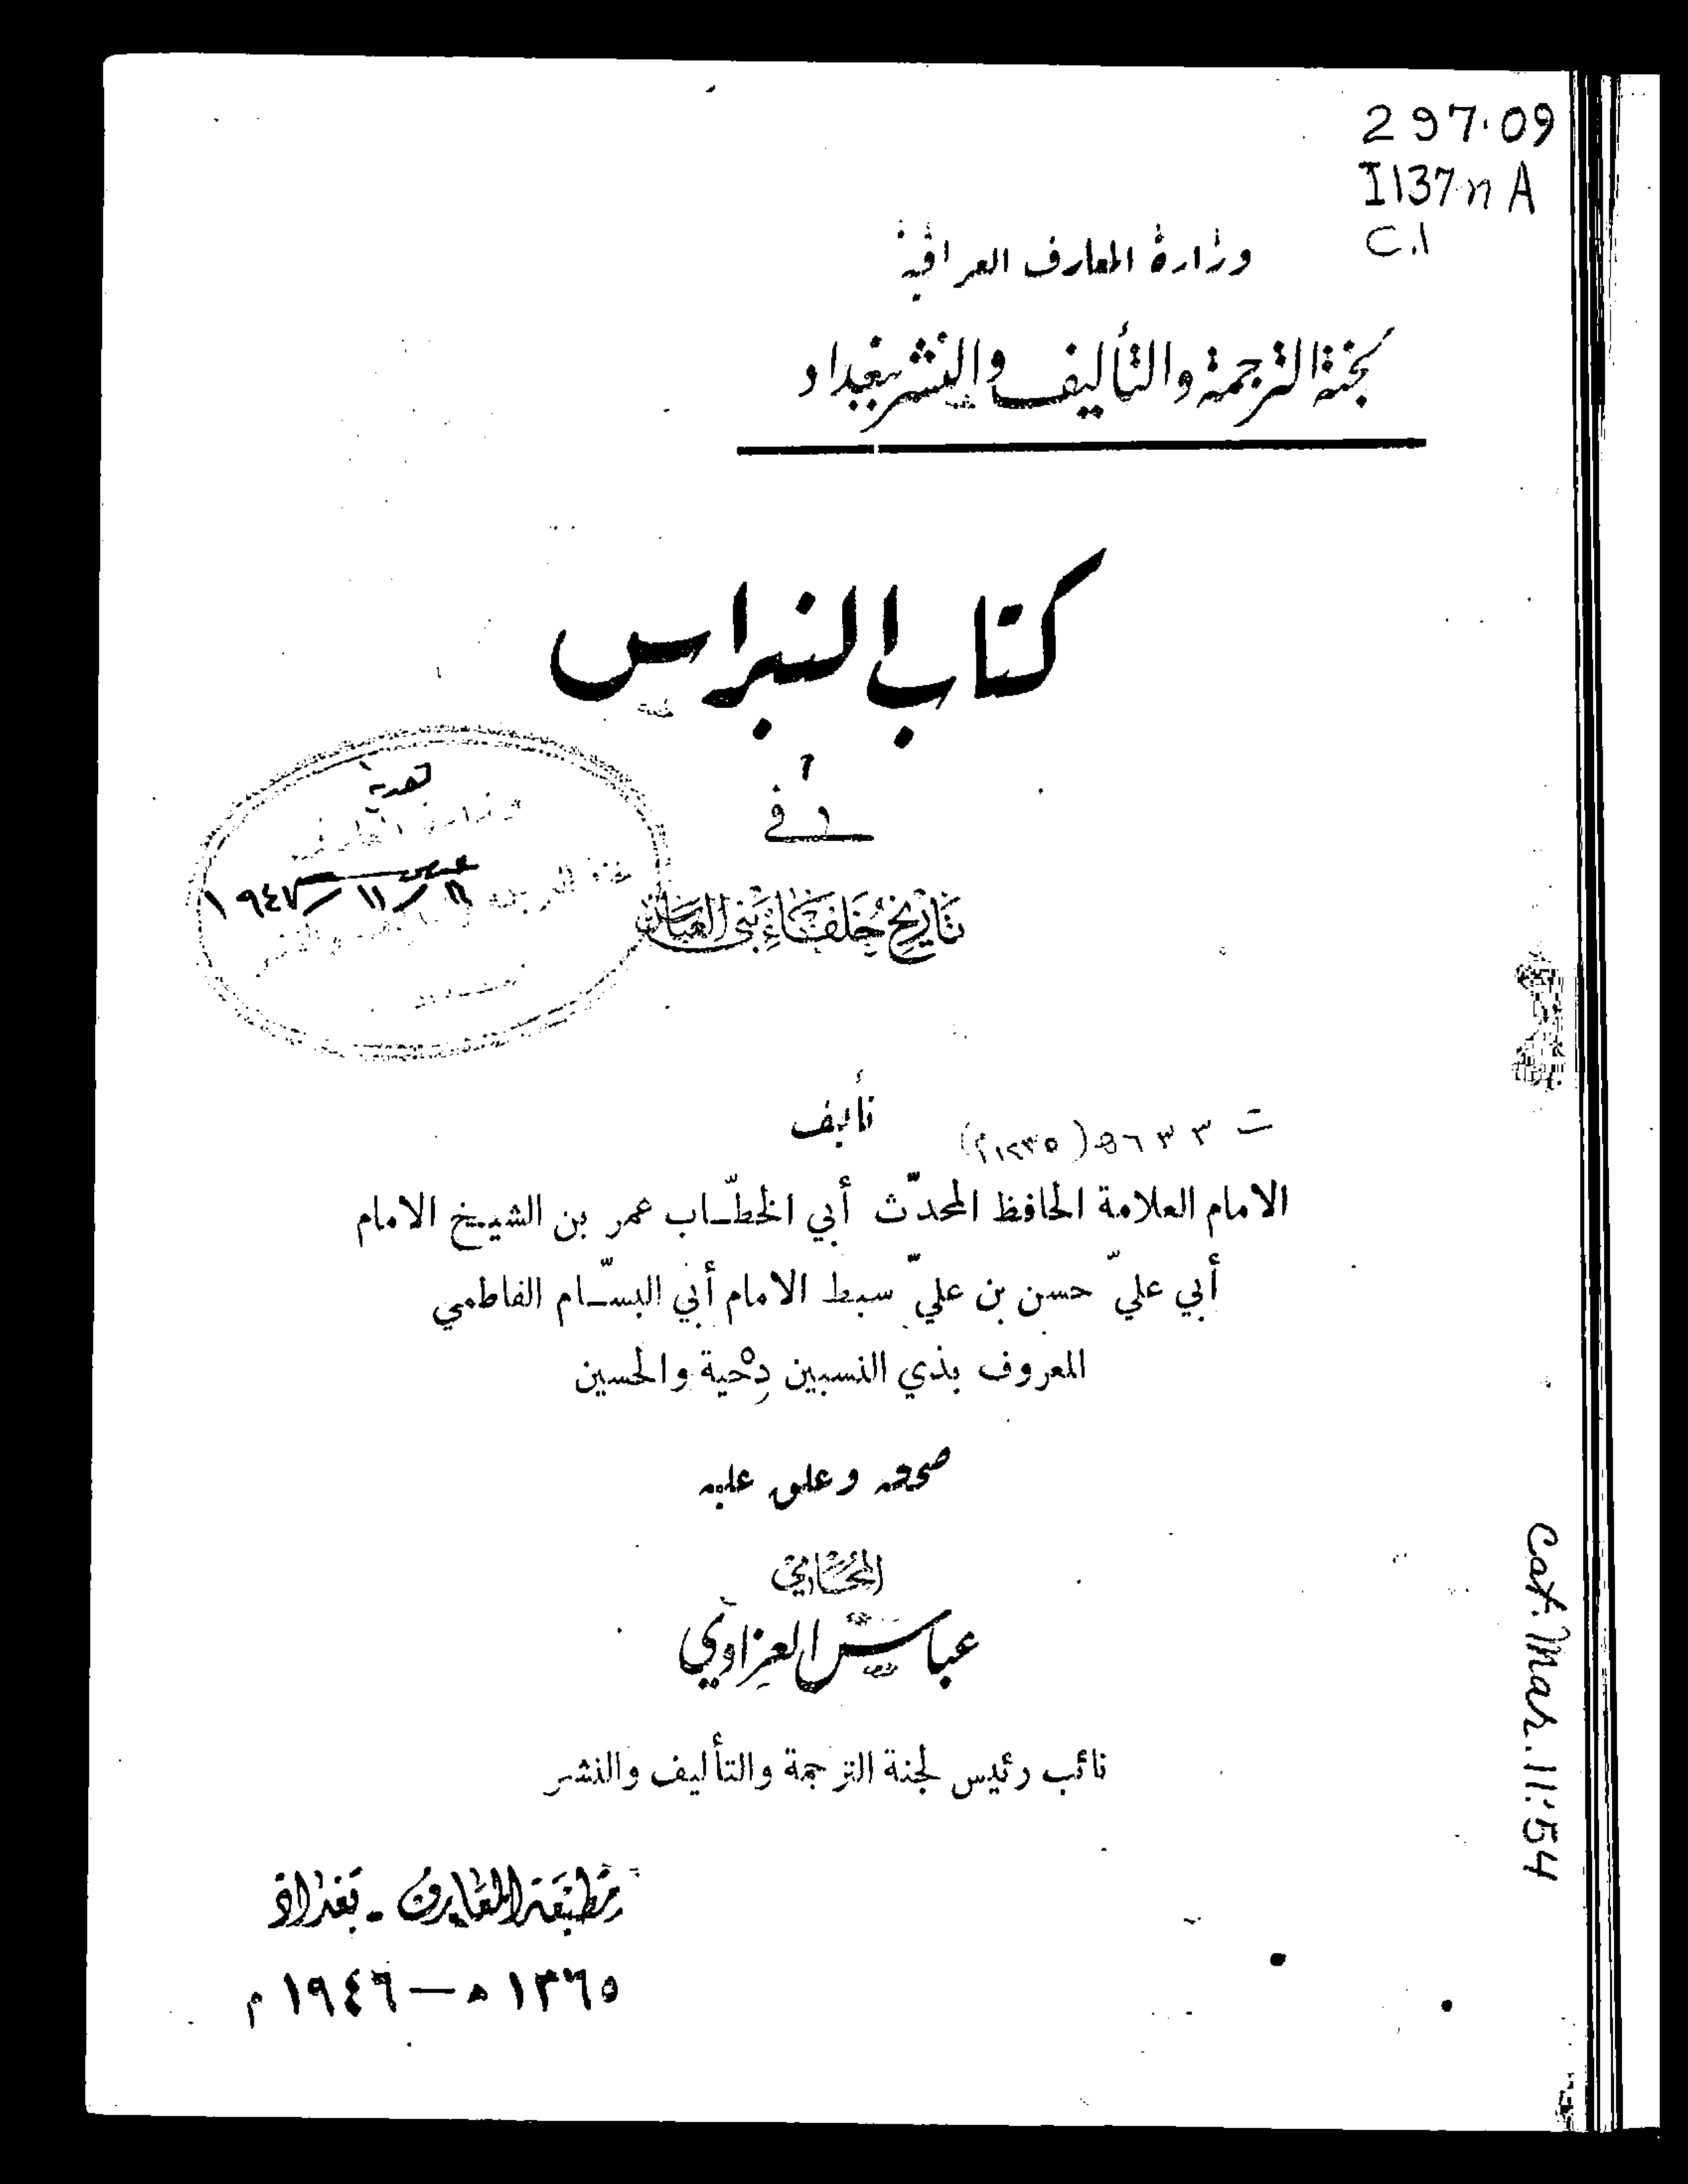 297.09
I137nA
C.1
وزارة المعارف العراقية
لجنة الترجمة والتأليف والنشر ببغداد
كتاب النبراس
في
تاريخ خلفاء بني العباس
هدية
١٩٤٧/١١/
تأليف
ت ٦٣٣ه (١٢٣٥م)
الامام العلامة الحافظ المحدّث أبي الخطّاب عمر بن الشيخ الامام
أبي عليّ حسن بن عليّ سبط الامام أبي البسّام الفاطمي
المعروف بذي النسبين دِحْية والحسين
صححه وعلق عليه
المحامي
عباس العزاوي
نائب رئيس لجنة الترجمة والتأليف والنشر
مطبعة المعارف - بغداد
١٣٦٥ ه — ١٩٤٦ م
Cat. Mar. 11.'54